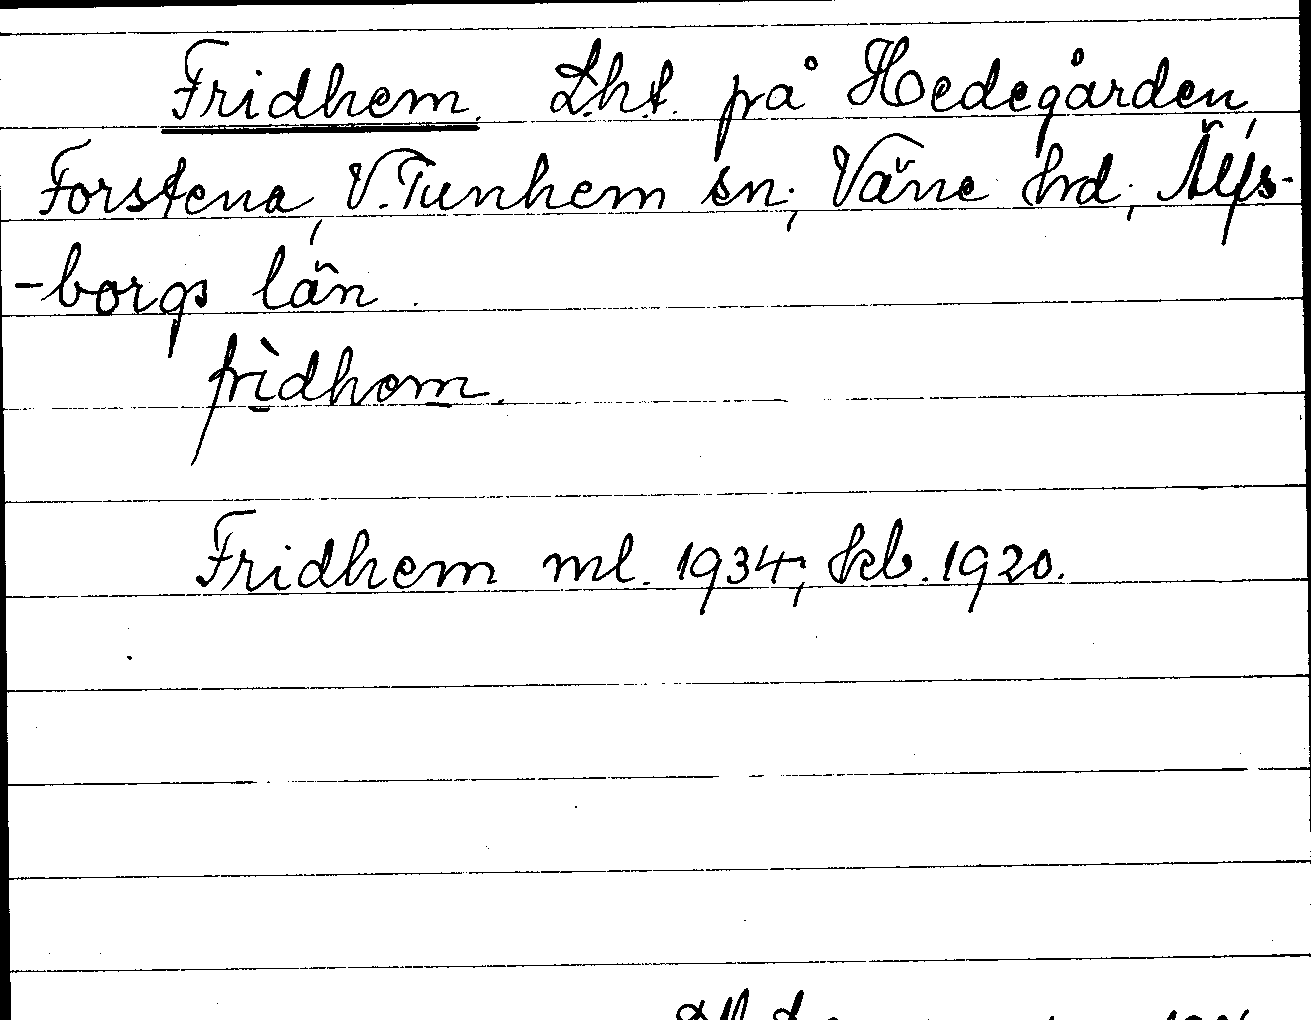 Fridhem. Lht. på Hedegården,
Forstena, V. Tunhem sn; Väne hd; Älfs-
-borgs län.
frìdhem.
Fridhem ml. 1934; kb. 1920.